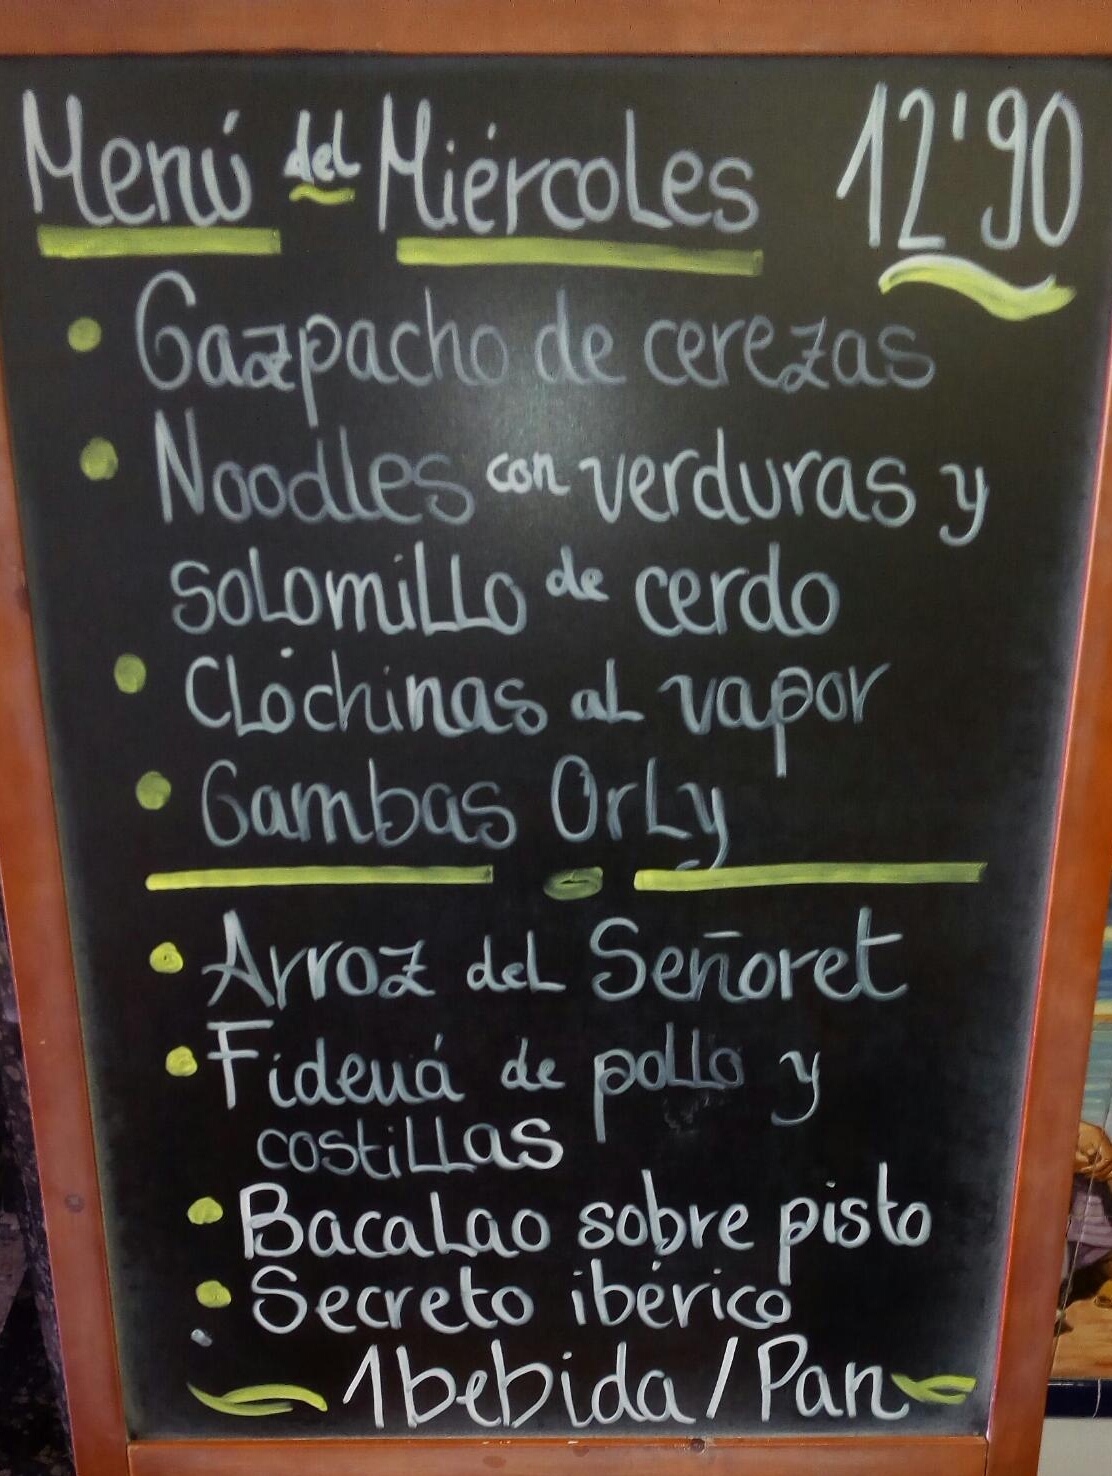 Menú del Miércoles 12'90
Gazpacho de cerezas
Noodles con verduras y
solomillo de cerdo
Clóchinas al vapor
Gambas Orly
Arroz del Señoret
Fideuá de pollo y
costillas
Bacalao sobre pisto
Secreto ibérico
1 bebida / Pan